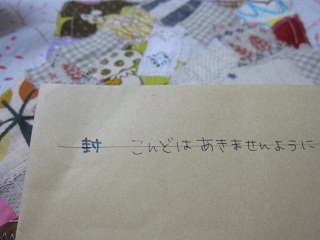 封 こんどはあきませんように